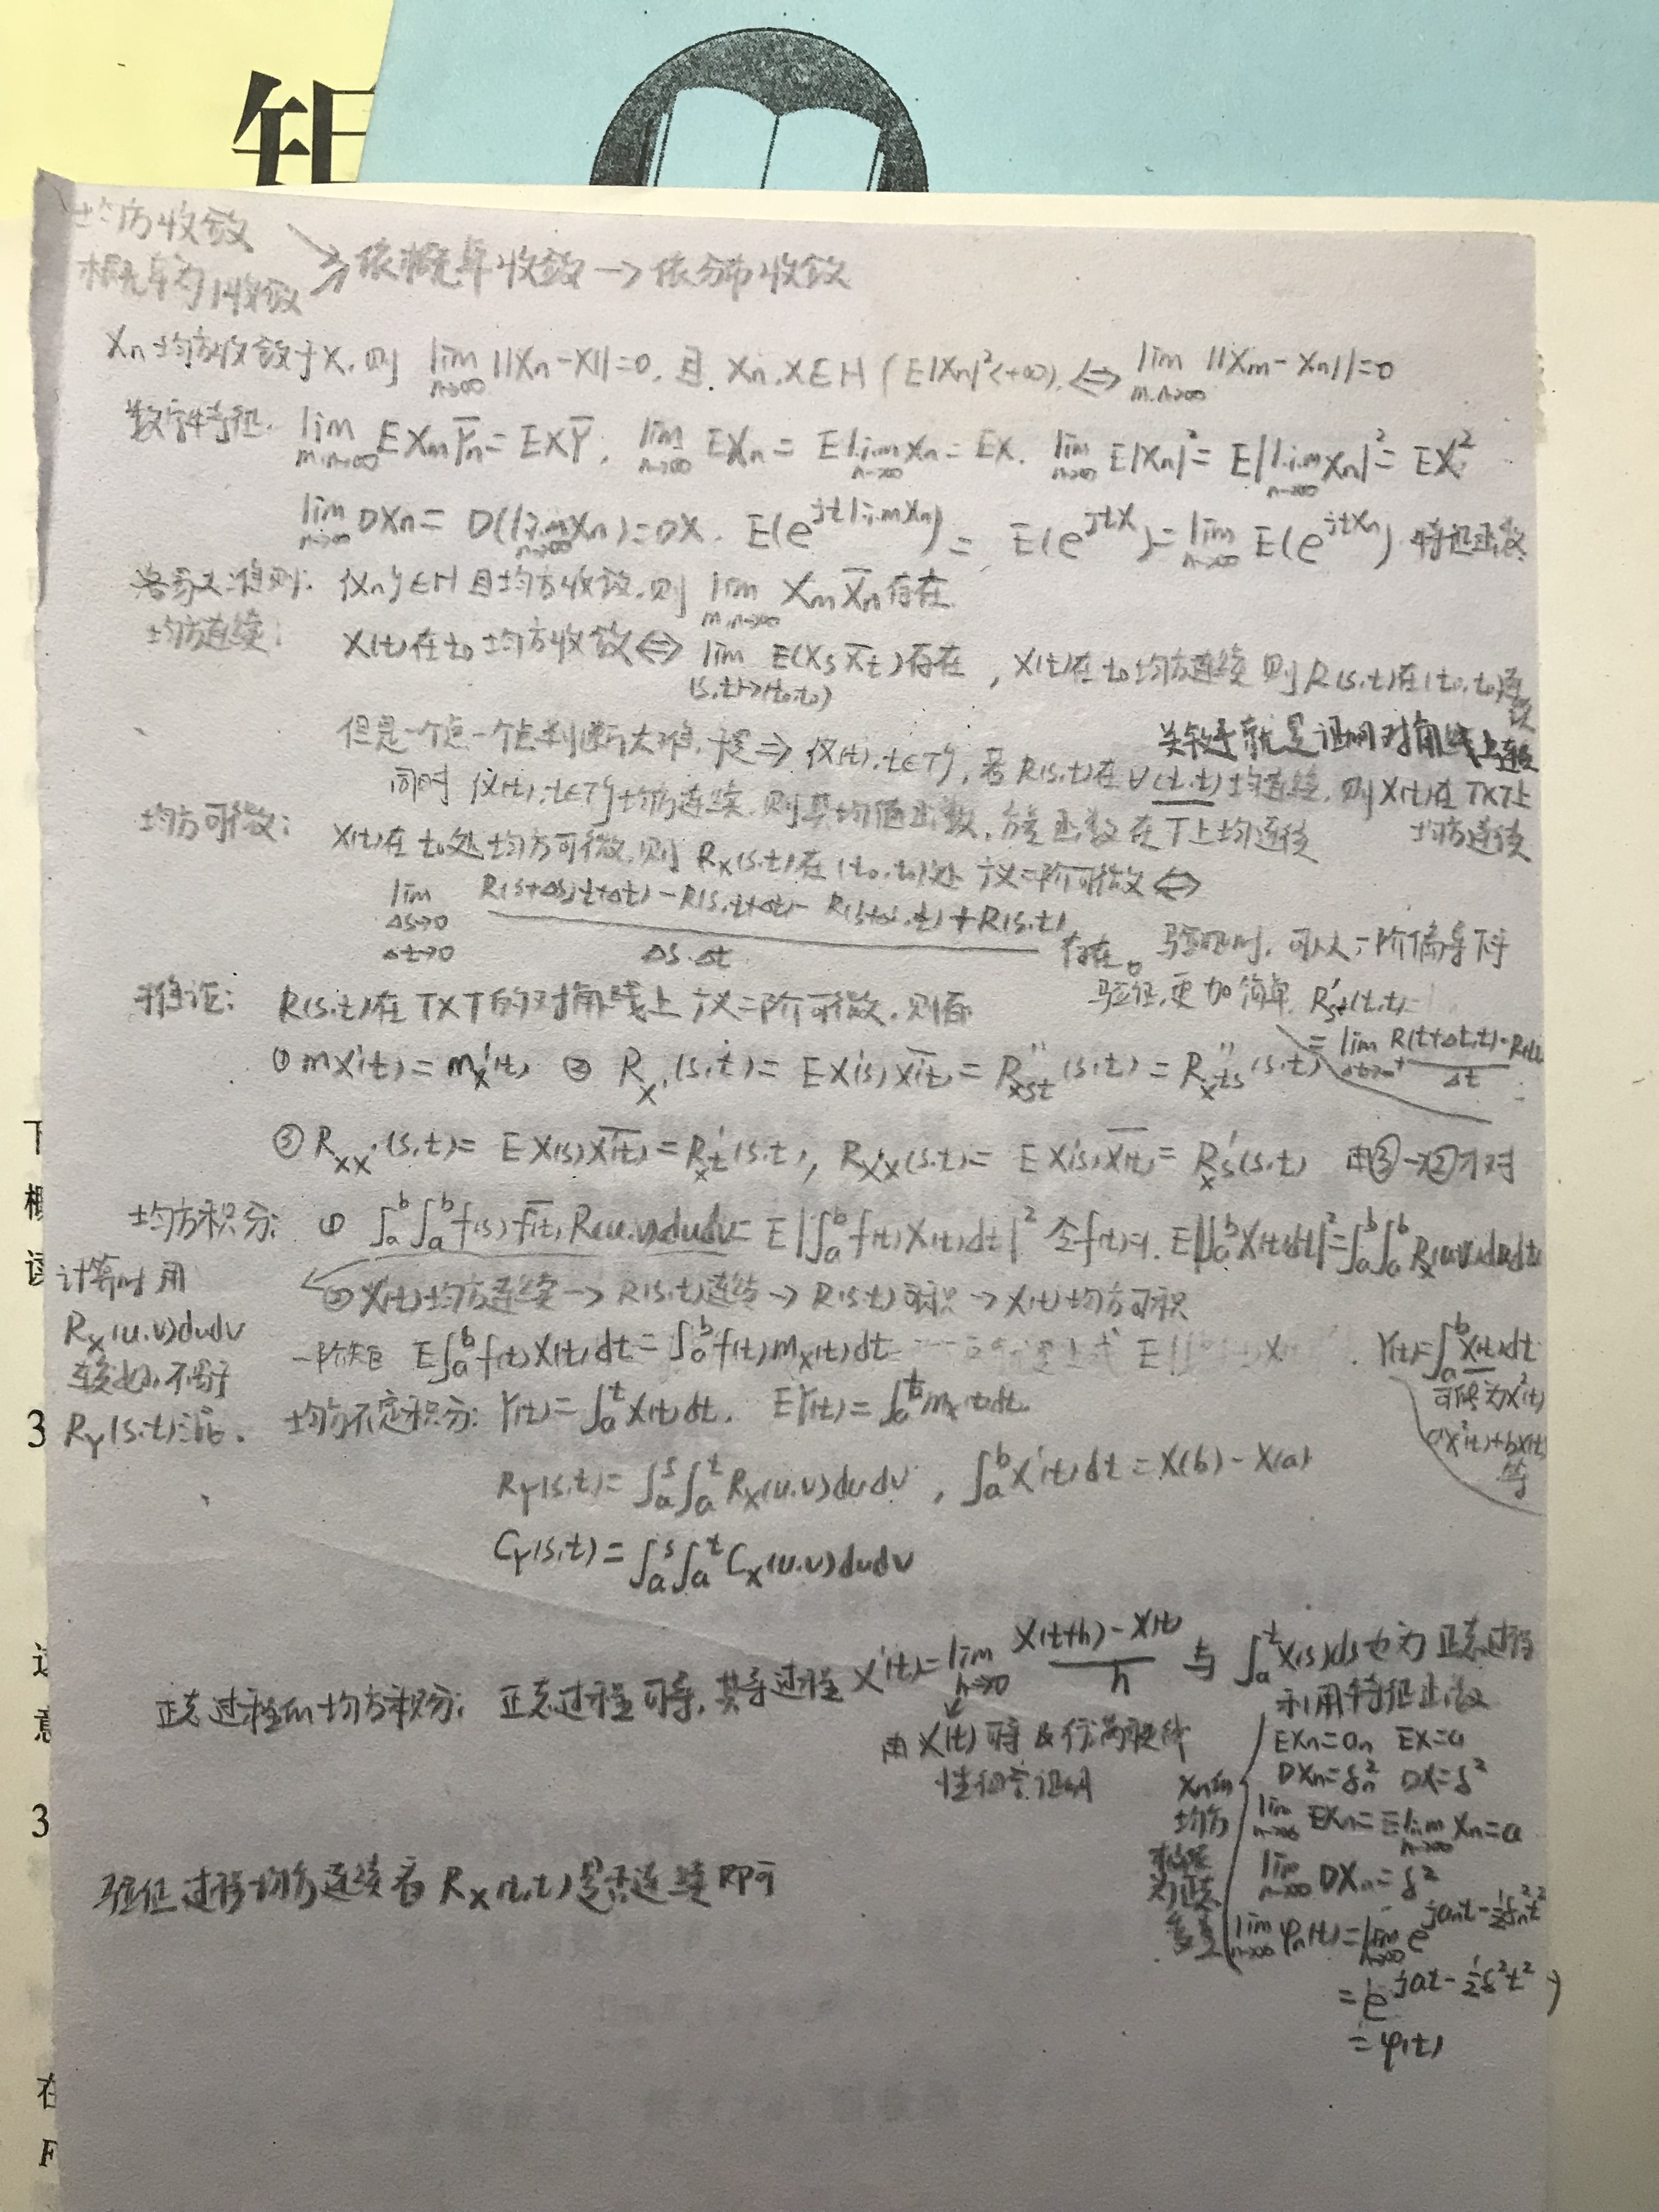 矩
均方收敛
概率为1收敛
依概率收敛→依分布收敛
Xn均方收敛于X, 则 lim n→∞ ||Xn-X||=0, 且 Xn, X∈H (E|Xn|²<+∞) ⇔ lim m,n→∞ ||Xm-Xn||=0
数字特征. lim m,n→∞ EXmȲn=EXȲ, lim n→∞ EXn=E l.i.m n→∞ Xn=EX. lim n→∞ E|Xn|²=E|l.i.m n→∞ Xn|²=EX²
lim n→∞ DXn=D(l.i.m n→∞ Xn)=DX. E(e^{jt l.i.m Xn})=E(e^{jtX})=lim n→∞ E(e^{jtXn}) 特征函数
洛易义准则: {Xn}∈H 且均方收敛, 则 lim m,n→∞ Xm X̄n 存在
均方连续: X(t)在t₀均方收敛⇔ lim (s,t)→(t₀,t₀) E(Xs X̄t)存在, X(t)在t₀均方连续 则R(s,t)在(t₀,t₀)连续
但是一个点一个点判断太难, 于是⇒ {X(t), t∈T}, 若R(s,t)在∀(t,t)均连续, 则X(t)在T×T上均方连续
关键就是证明对角线上连续
同时{X(t), t∈T}均方连续, 则其均值函数, 方差函数在T上均连续
均方可微: X(t)在t₀处均方可微, 则 Rx(s,t)在(t₀,t₀)处广义二阶可微⇔
lim Δs→0 Δt→0 [R(s+Δs,t+Δt)-R(s,t+Δt)-R(s+Δs,t)+R(s,t)] / Δs·Δt 存在。
验证时, 可以一阶偏导下手
验证, 更加简单. R's+(t,t)
= lim Δt→0+ R(t+Δt,t)-R(t,t) / Δt
推论: R(s,t)在T×T的对角线上广义二阶可微, 则有
① mX'(t)=m'x(t) ② Rx'(s,t)=EX'(s)X̄'(t)=R''xst(s,t)=R''xts(s,t)
③ Rxx'(s,t)=EX(s)X̄'(t)=R'xt(s,t), Rx'x(s,t)=EX'(s)X̄(t)=R'xs(s,t) 由③→②才对
均方积分: ① ∫ₐᵇ∫ₐᵇ f(s)f̄(t)R(u,v)dudv=E|∫ₐᵇ f(t)X(t)dt|² 令f(t)=1. E|∫ₐᵇ X(t)dt|²=∫ₐᵇ∫ₐᵇ Rx(u,v)dudv
计算时用
Rx(u,v)dudv
Ry(s,t)
② X(t)均方连续→R(s,t)连续→R(s,t)可积→X(t)均方可积
一阶矩 E∫ₐᵇ f(t)X(t)dt=∫ₐᵇ f(t)mx(t)dt
Y(t)=∫ₐᵇ X(t)dt
可能为X²(t)
aX²(t)+bX(t)
等
均方不定积分: Y(t)=∫ₐᵗ X(t)dt. EY(t)=∫ₐᵗ mx(t)dt.
Ry(s,t)=∫ₐˢ∫ₐᵗ Rx(u,v)dudv, ∫ₐᵇ X'(t)dt=X(b)-X(a)
Cy(s,t)=∫ₐˢ∫ₐᵗ Cx(u,v)dudv
正态过程的均方积分: 正态过程可导, 其导过程 X'(t)=lim h→0 X(t+h)-X(t) / h 与 ∫ₐᵗ X(s)ds也为正态过程
由X(t)可导&
性组合证明
利用特征函数
Xn的
均方
极限
为正态
变量
EXn=an EX=a
DXn=δn² DX=δ²
lim n→∞ EXn=E l.i.m n→∞ Xn=a
lim n→∞ DXn=δ²
lim n→∞ φn(t)=lim n→∞ e^{jant-½δn²t²}
=e^{jat-½δ²t²}
=φ(t)
验证过程均方连续看Rx(t,t)是否连续即可